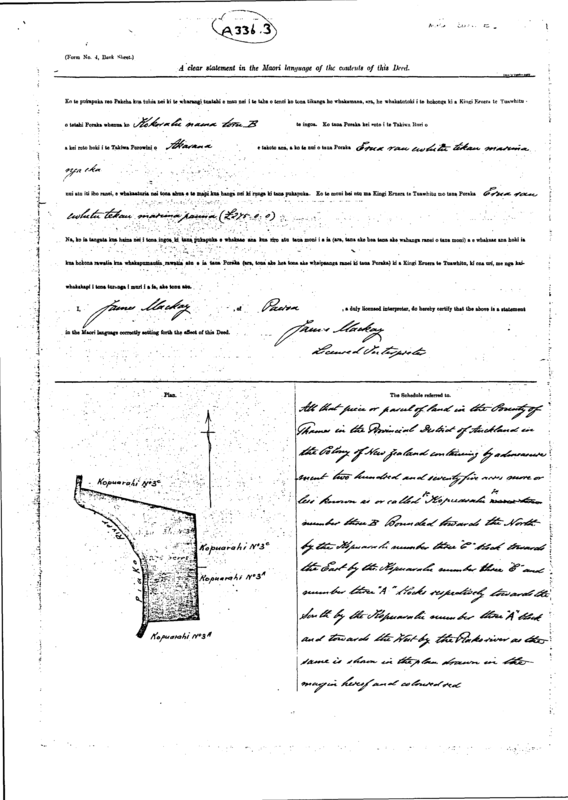 A336.3
(Form No. 4, Back Sheet.)
A clear statement in the Maori language of the contents of this Deed.
Ko te pukapuka reo Pakeha kua tuhia nei ki te wharangi tuatahi e mau nei i te taha o tenei ko tona tikanga ho whakamana, ara, he whakatutuki i te hokonga ki a Kingi Eruera te Tuawhitu
o tetahi Poraka whenua ko Kopuarahi nama toru B te ingoa. Ko taua Poraka kei roto i te Takiwa Ihuri o
a kei roto hoki i te Takiwa Porowini o Akarana e takoto ana, a ko te nui o taua Poraka E rua rau e whitu tekau marima
nga eka
nui atu iti iho ranei, e whakaaturia nei tona ahua e te mapi kua hanga nei ki runga ki tana pukapuka. Ko te moni hei utu ma Kingi Eruera te Tuawhitu mo taua Poraka E rua rau
e whitu tekau marima pauna (£275.0.0)
Na, ko ia tangata kua haina nei i tona ingoa ki tana pukapuka e whakaae ana kua riro atu taua moni i a ia (ara, tana ake hea tana ake wahanga ranei o taua moni) a e whakaae ana hoki ia
kua hokona rawatia kua whakapumautia rawatia atu e ia taua Poraka (ara, tona ake hea tona ake whaipaanga ranei ki taua Poraka) ki a Kingi Eruera te Tuawhitu, ki ona uri, me nga kai-
whakakapi i tona turanga i muri i a ia, ake tonu atu.
I, James Mackay, of Paeroa, a duly licensed interpreter, do hereby certify that the above is a statement
in the Maori language correctly setting forth the effect of this Deed.
James Mackay
Licensed Interpreter
Plan.
Kopuarahi No 3C
River
Piako
acres
Kopuarahi No 3C
Kopuarahi No 3A
Kopuarahi No 3A
The Schedule referred to.
All that piece or parcel of land in the County of
Thames in the Provincial District of Auckland in
the Colony of New Zealand containing by admeasure
ment two hundred and seventy five acres more or
less known as or called "Kopuarahi"
number three B Bounded towards the North
by the Kopuarahi number three "C" block towards
the East by the Kopuarahi number three "C" and
number three "A" blocks respectively towards the
South by the Kopuarahi number three "A" block
and towards the West by the Piako river as the
same is shewn in the plan drawn in the
margin hereof and coloured red